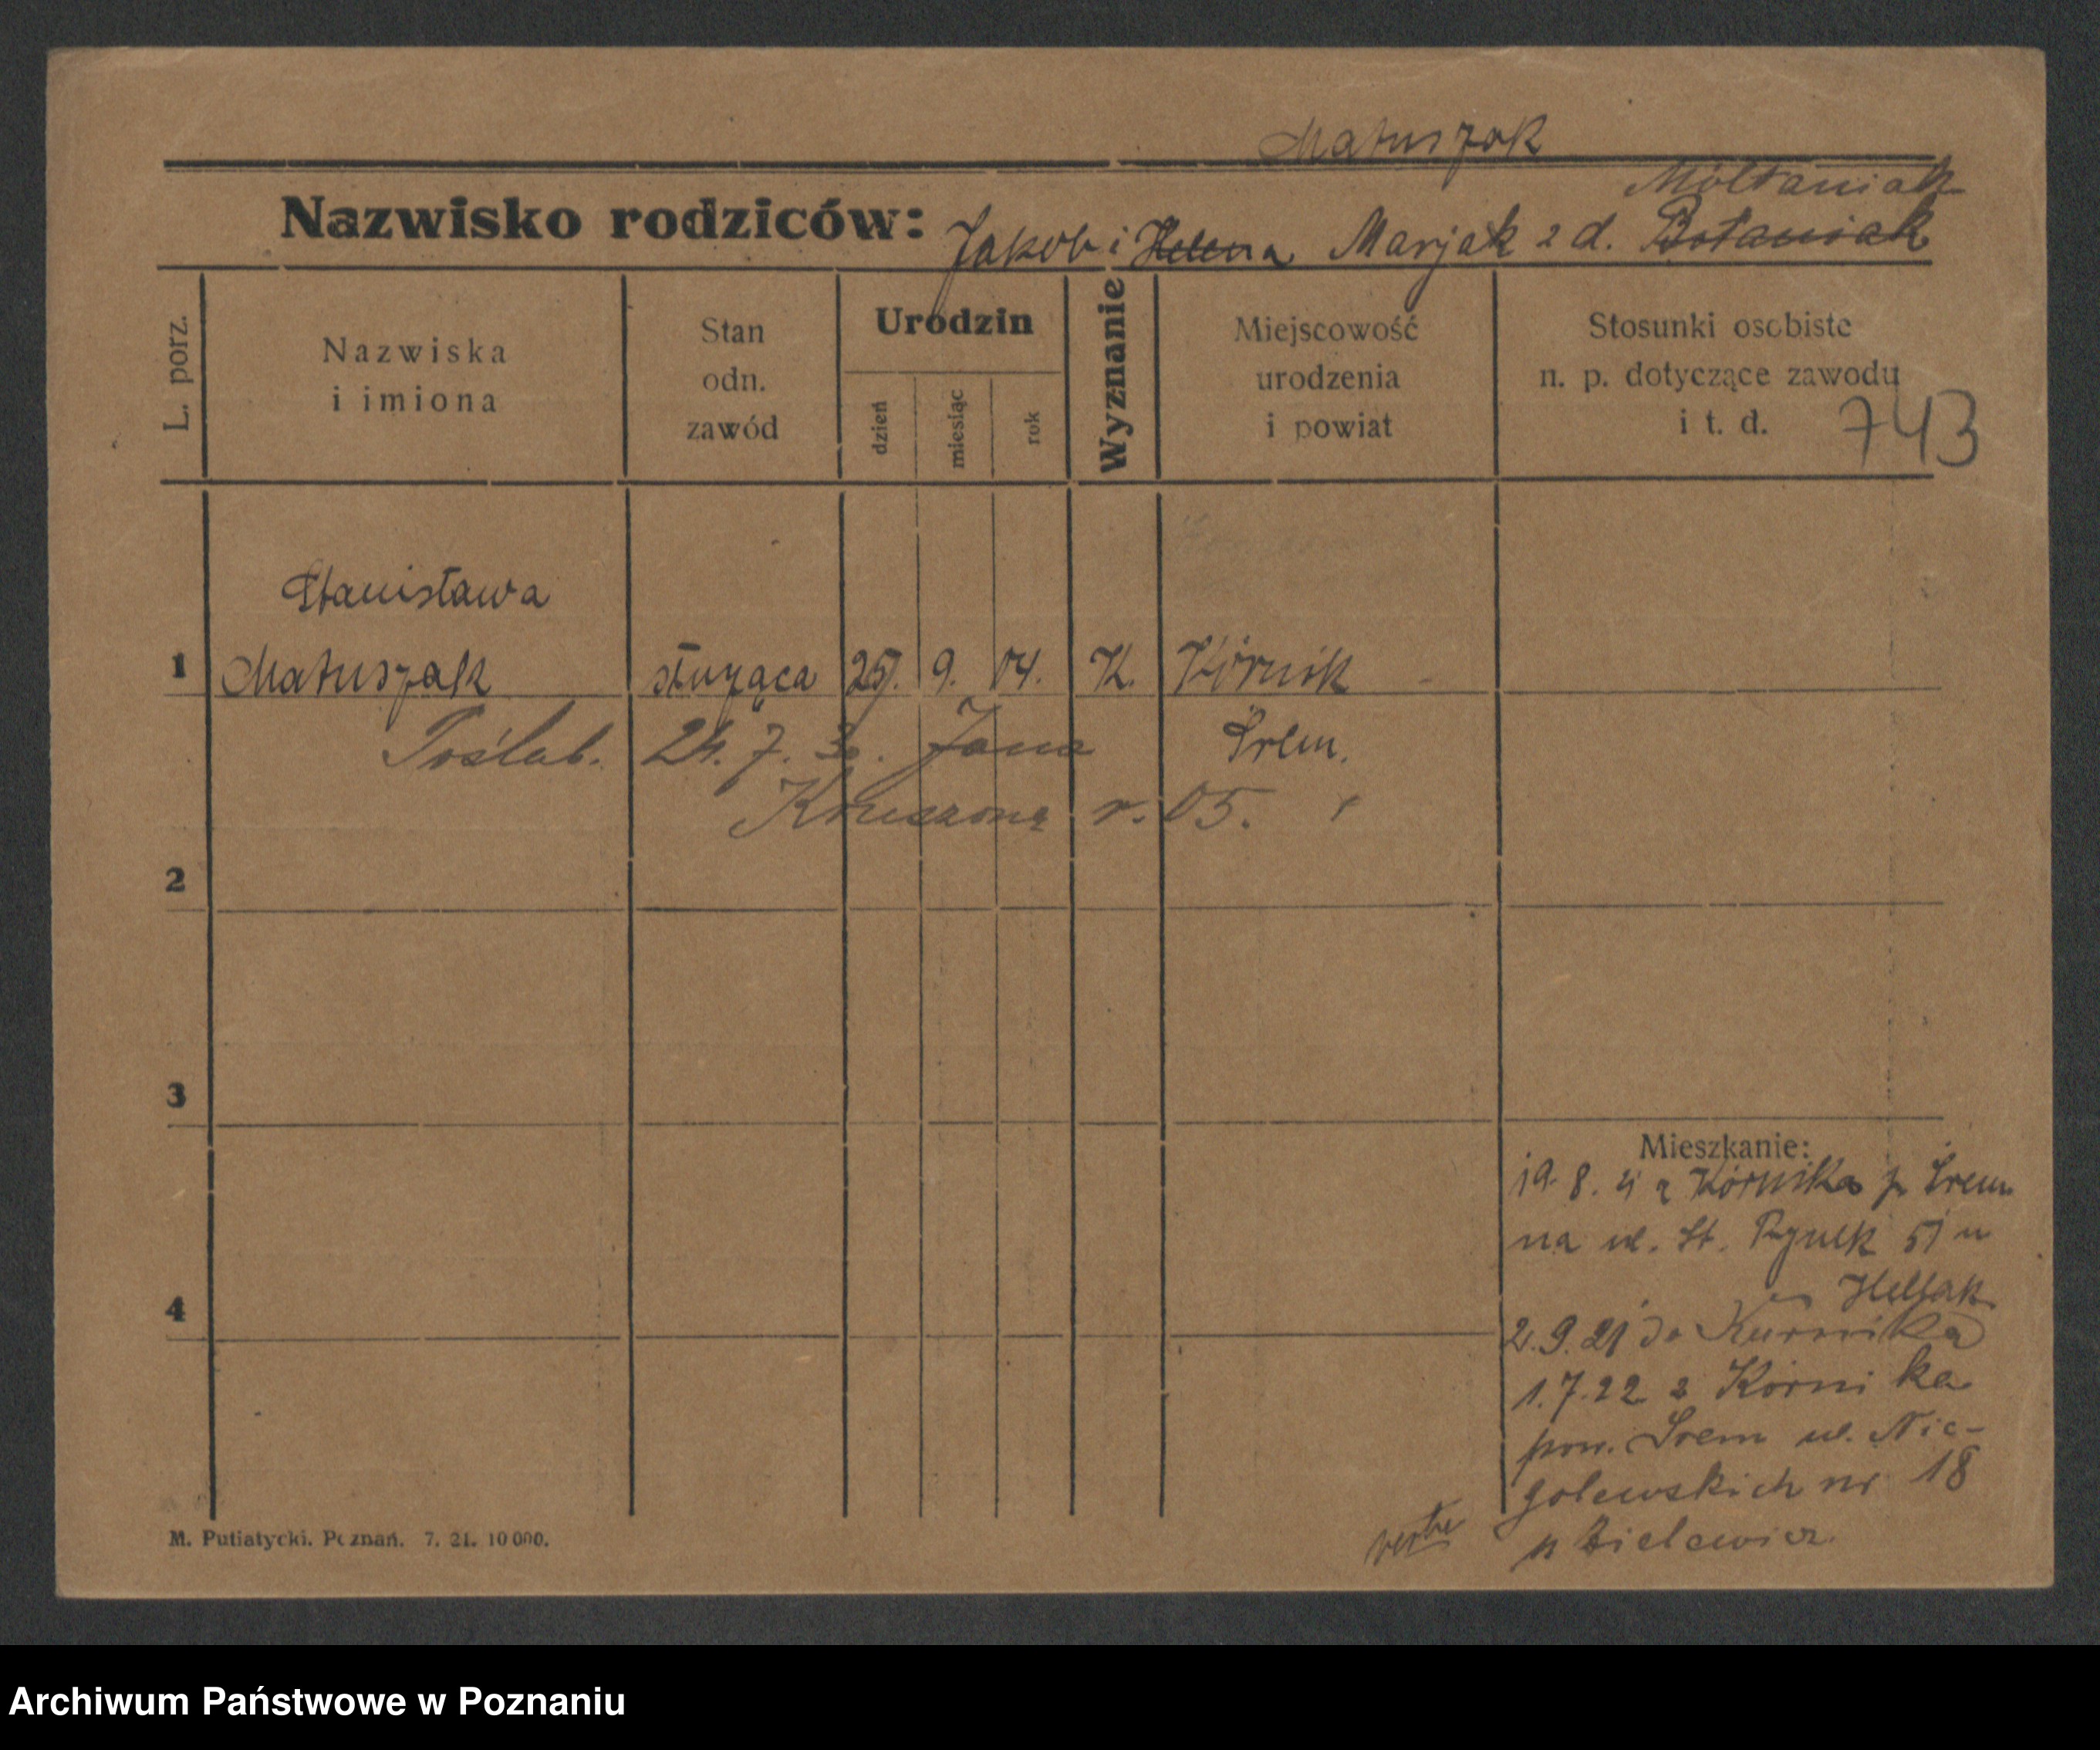 Matuszak
Mółtaniak
Nazwisko rodziców: Jakob i Helena Marjak z d. Botaniak
L. porz.
Nazwiska
i imiona
Stan
odn.
zawód
Urodzin
dzień
miesiąc
rok
Wyznanie
Miejscowość
urodzenia
i powiat
Stosunki osobiste
n. p. dotyczące zawodu
i t. d.
743
Stanisława
1 Matuszak służąca 25. 9. 04. K. Kórnik
Poślub. 24. 7. 30. Jana Śrem.
r. 05.
2
3
4
Mieszkanie:
19. 8. 21 z Kórnika p. Śrem
na ul. St. Rynek 51 u
2. 9. 21 do Kurnika
1. 7. 22 z Kórnika
pow. Śrem ul. Nie-
golewskich nr 18
u Bielewicz
verte
M. Putiatycki. Poznań. 7. 21. 10 000.
Archiwum Państwowe w Poznaniu